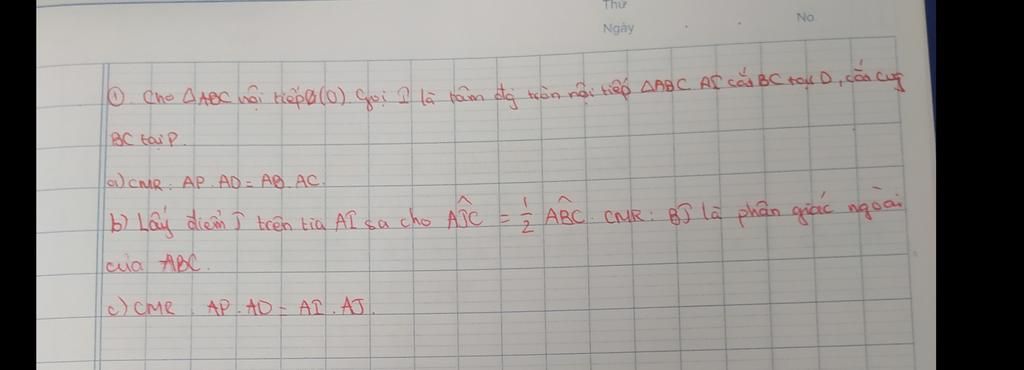 Thứ
Ngày . . No.
① Cho △ABC nội tiếp (O). Gọi I là tâm đg tròn nội tiếp △ABC AI cắt BC tại D, cắt cung
BC tại P.
a) CMR: AP. AD = AB. AC.
b) Lấy điểm J trên tia AI sa cho AĴC = 1/2 AB̂C. CMR: BJ là phân giác ngoài
của ABC.
c) CMR AP. AD = AI. AJ.